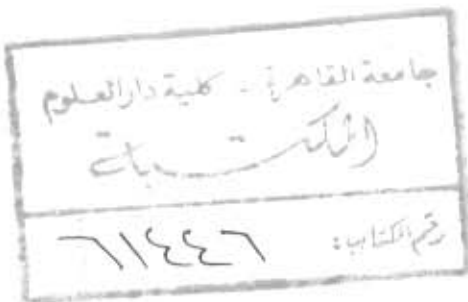 جامعة القاهرة - كلية دار العلوم
المكتبة
رقم الكتاب: ٦١٤٤٦